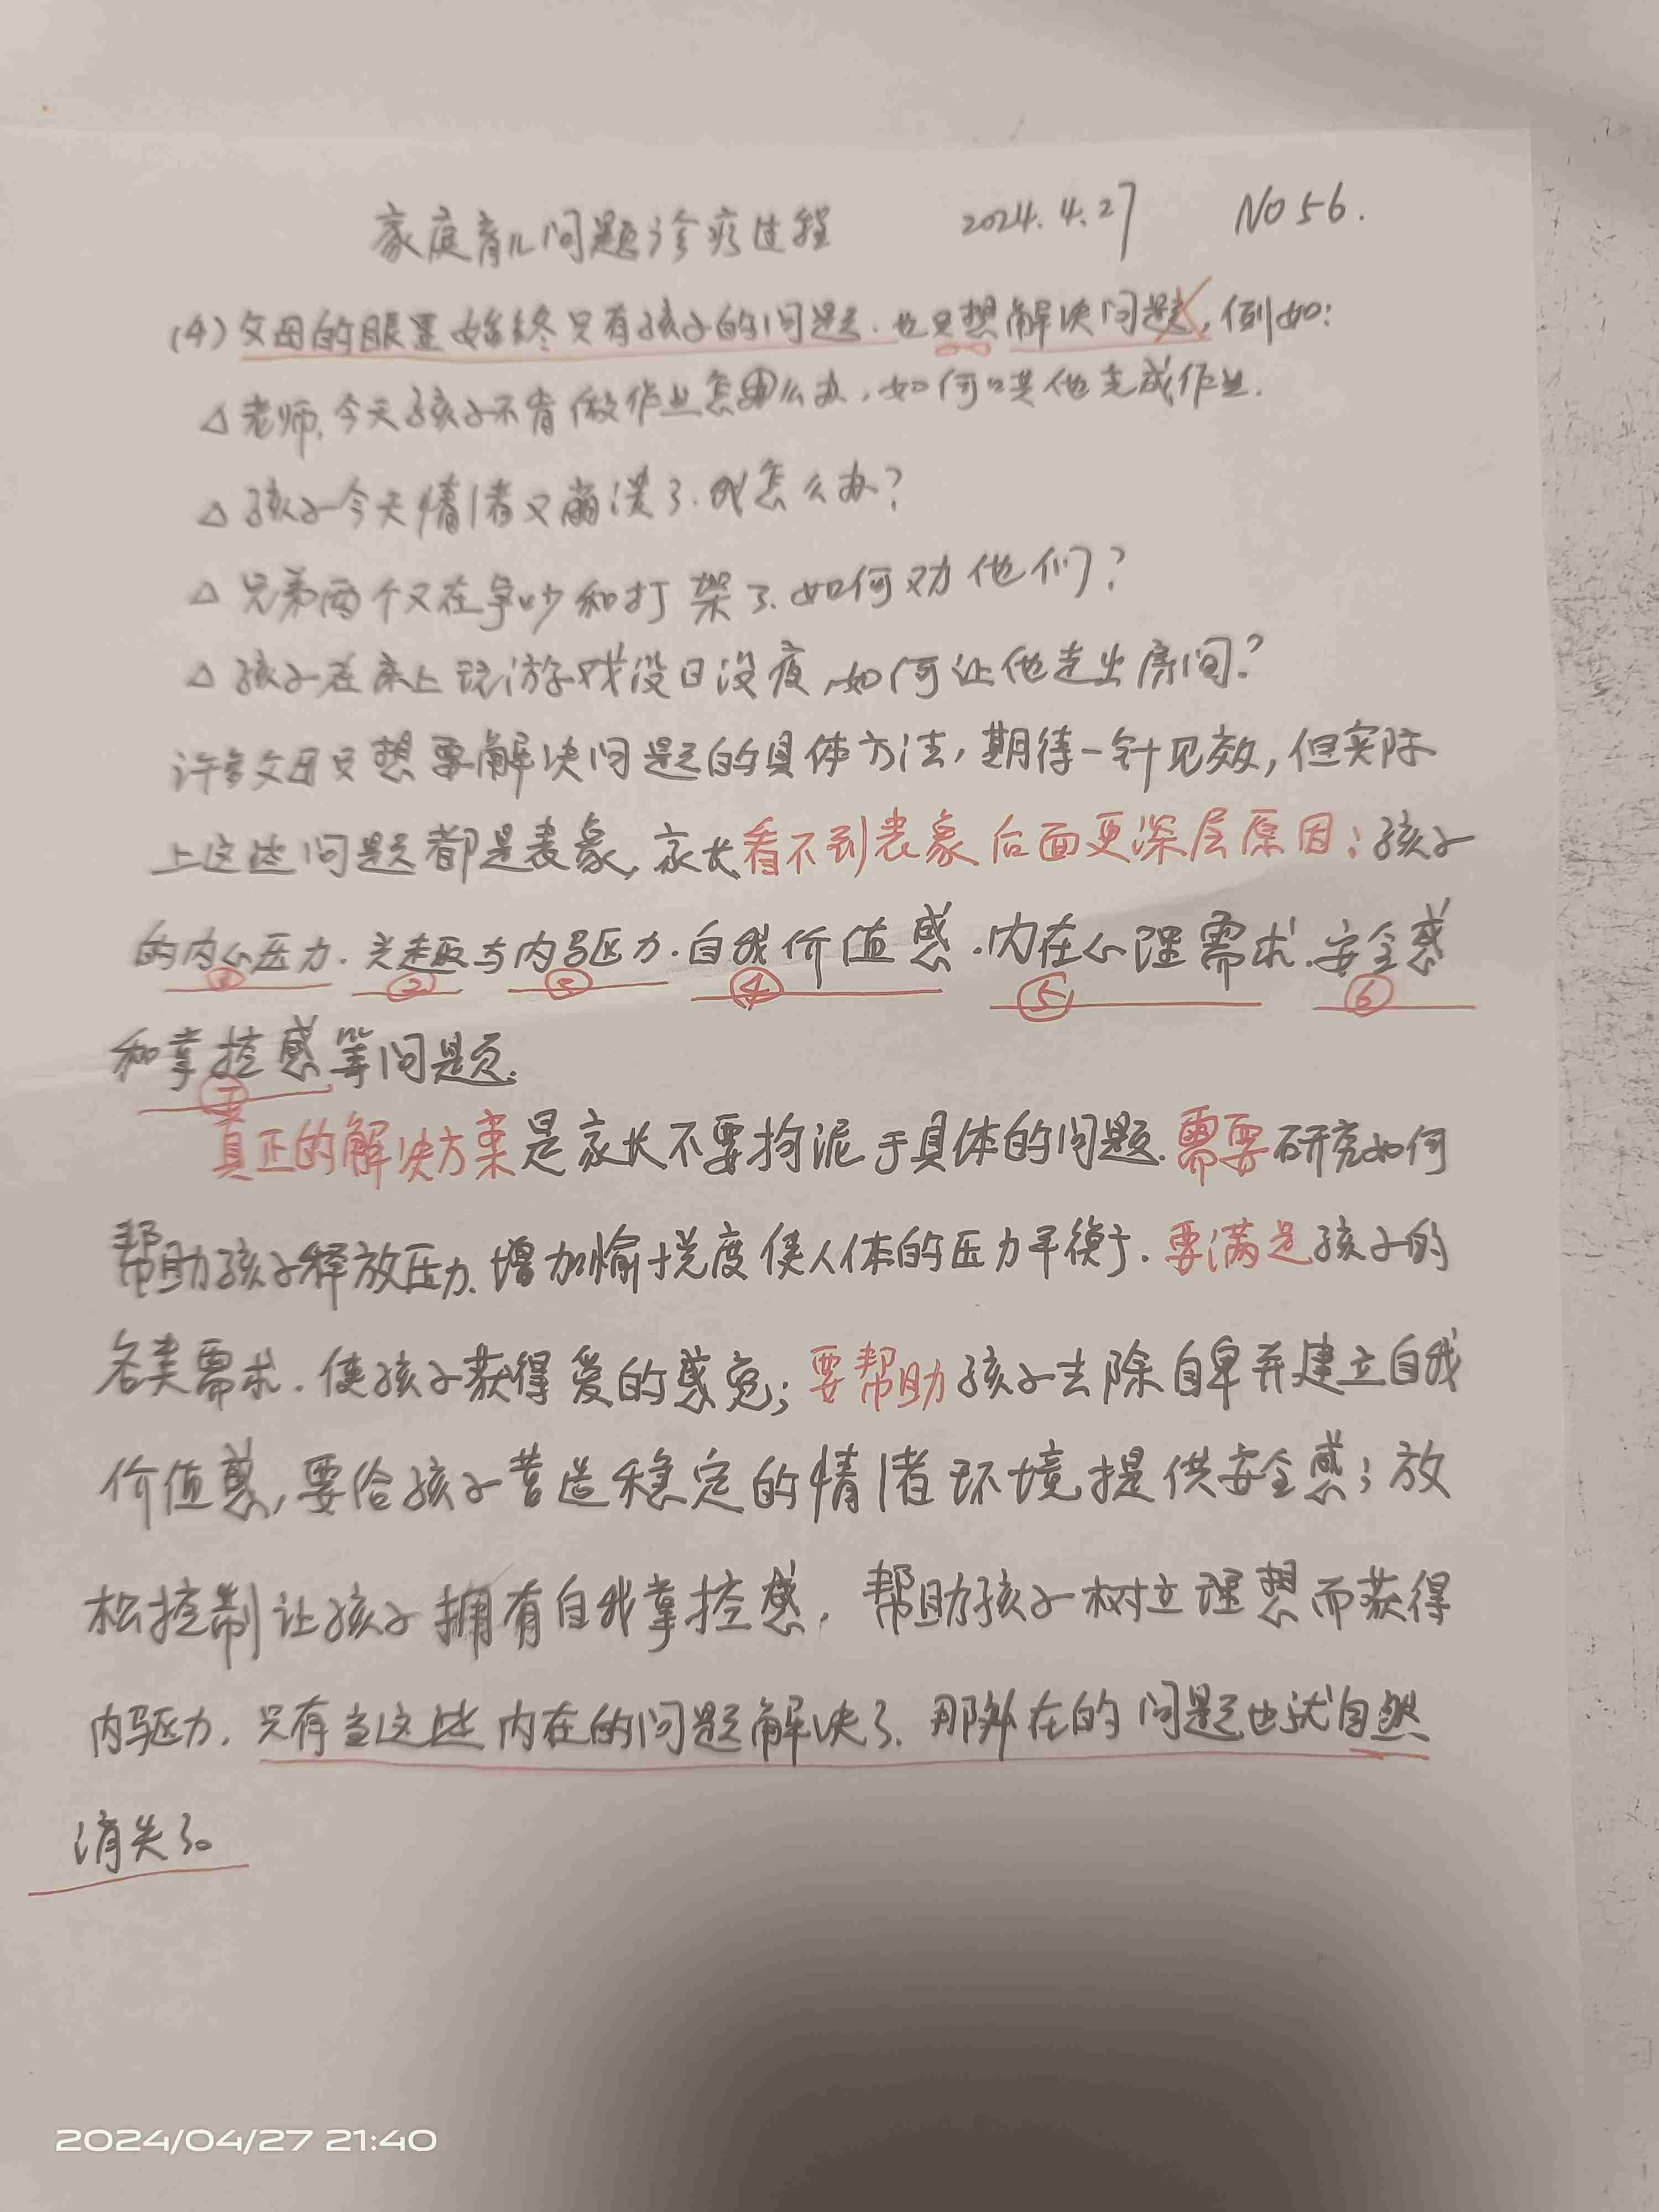 家庭育儿问题诊疗过程 2024.4.27 NO 56.
(4)父母的眼里始终只有孩子的问题.也只想解决问题,例如:
△老师,今天孩子不肯做作业怎么办,如何哄他完成作业.
△孩子今天情绪又崩溃了.我怎么办?
△兄弟两个又在争吵和打架了.如何劝他们?
△孩子在床上玩游戏没日没夜,如何让他走出房间?
许多父母只想要解决问题的具体方法,期待一针见效,但实际
上这些问题都是表象,家长看不到表象后面更深层原因:孩子
的内心压力.兴趣与内驱力.自我价值感.内在心理需求.安全感
① ② ③ ④ ⑤ ⑥
和掌控感等问题.
⑦
真正的解决方案是家长不要拘泥于具体的问题.需要研究如何
帮助孩子释放压力.增加愉悦度使人体的压力平衡.要满足孩子的
各类需求.使孩子获得爱的感觉;要帮助孩子去除自卑并建立自我
价值感,要给孩子营造稳定的情绪环境提供安全感;放
松控制让孩子拥有自我掌控感,帮助孩子树立理想而获得
内驱力.只有当这些内在的问题解决了.那外在的问题也就自然
消失了。
2024/04/27 21:40